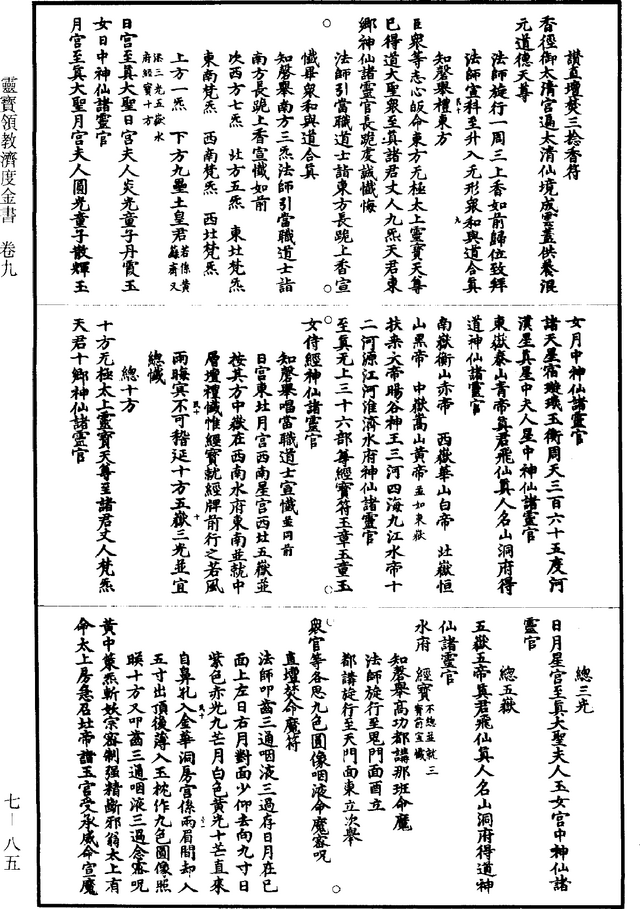 讃直壇焚三捻香符
香徑御太清宫遍太清仙境成雲蓋供養混
元道德天尊
法師旋行一周三上香如前歸位致拜
法師宣科至升入无形衆和與道合真
知磬舉禮東方
臣衆等志心皈命東方无極太上靈寶天尊
已得道大聖衆至真諸君丈人九炁天君東
鄉神仙諸靈官長跪虔誠懺悔
法師引當職道士詣東方長跪上香宣
懺畢衆和與道合真
知磬舉南方三炁法師引當職道士詣
南方長跪上香宣懺如前
次西方七炁 北方五炁 東北梵炁
東南梵炁 西南梵炁 西北梵炁
上方一炁 下方九壘土皇君若係黄籙齋又
添三光五嶽水府經寶十方
日宫至真大聖日宫夫人炎光童子丹霞玉
女日中神仙諸靈官
月宫至真大聖月宫夫人圓光童子散輝玉
女月中神仙諸靈官
諸天星宿璇璣玉衡周天三百六十五度河
漢星真星中夫人星中神仙諸靈官
東嶽泰山青帝真君飛仙真人名山洞府得
道神仙諸靈官
南嶽衡山赤帝 西嶽華山白帝 北嶽恒
山黑帝 中嶽嵩山黄帝並如東嶽
扶桑大帝暘谷神王三河四海九江水帝十
二河源江河淮濟水府神仙諸靈官
至真无上三十六部尊經寶符玉章玉童玉
女侍經神仙諸靈官
知磬舉唱當職道士宣懺並同前
日宫東北月宫西南星宫西北五嶽並
按其方中嶽在西南水府東南並就中
層壇禮懺惟經寶就經牌前行之若風
雨晦冥不可稽延十方五嶽三光並宜
總懺
總十方
十方无極太上靈寶天尊至諸君丈人梵炁
天君十鄉神仙諸靈官
總三光
日月星宫至真大聖夫人玉女宫中神仙諸
靈官
總五嶽
五嶽五帝真君飛仙真人名山洞府得道神
仙諸靈官
水府 經寶不總並就三寶前宣懺
知磬舉高功都講那班命魔
法師旋行至鬼門面酉立
都講旋行至天門面東立次舉
衆官等各思九色圓像咽液命魔密呪
直壇焚命魔符
法師叩齒三通咽液三過存日月在已
面上左日右月對面少仰去向九寸日
紫色赤光九芒月白色黄光十芒直來
自鼻孔入金華洞房宫係兩眉間却入
五寸出頂後薄入玉枕作九色圓像照
映十方又叩齒三通咽液三過念密呪
黄中策炁斬妖宗密制强精斷邪翁太上有
命太上房急召北帝諸玉官受承威命宣魔
靈寶領教濟度金書 卷九
七—八五